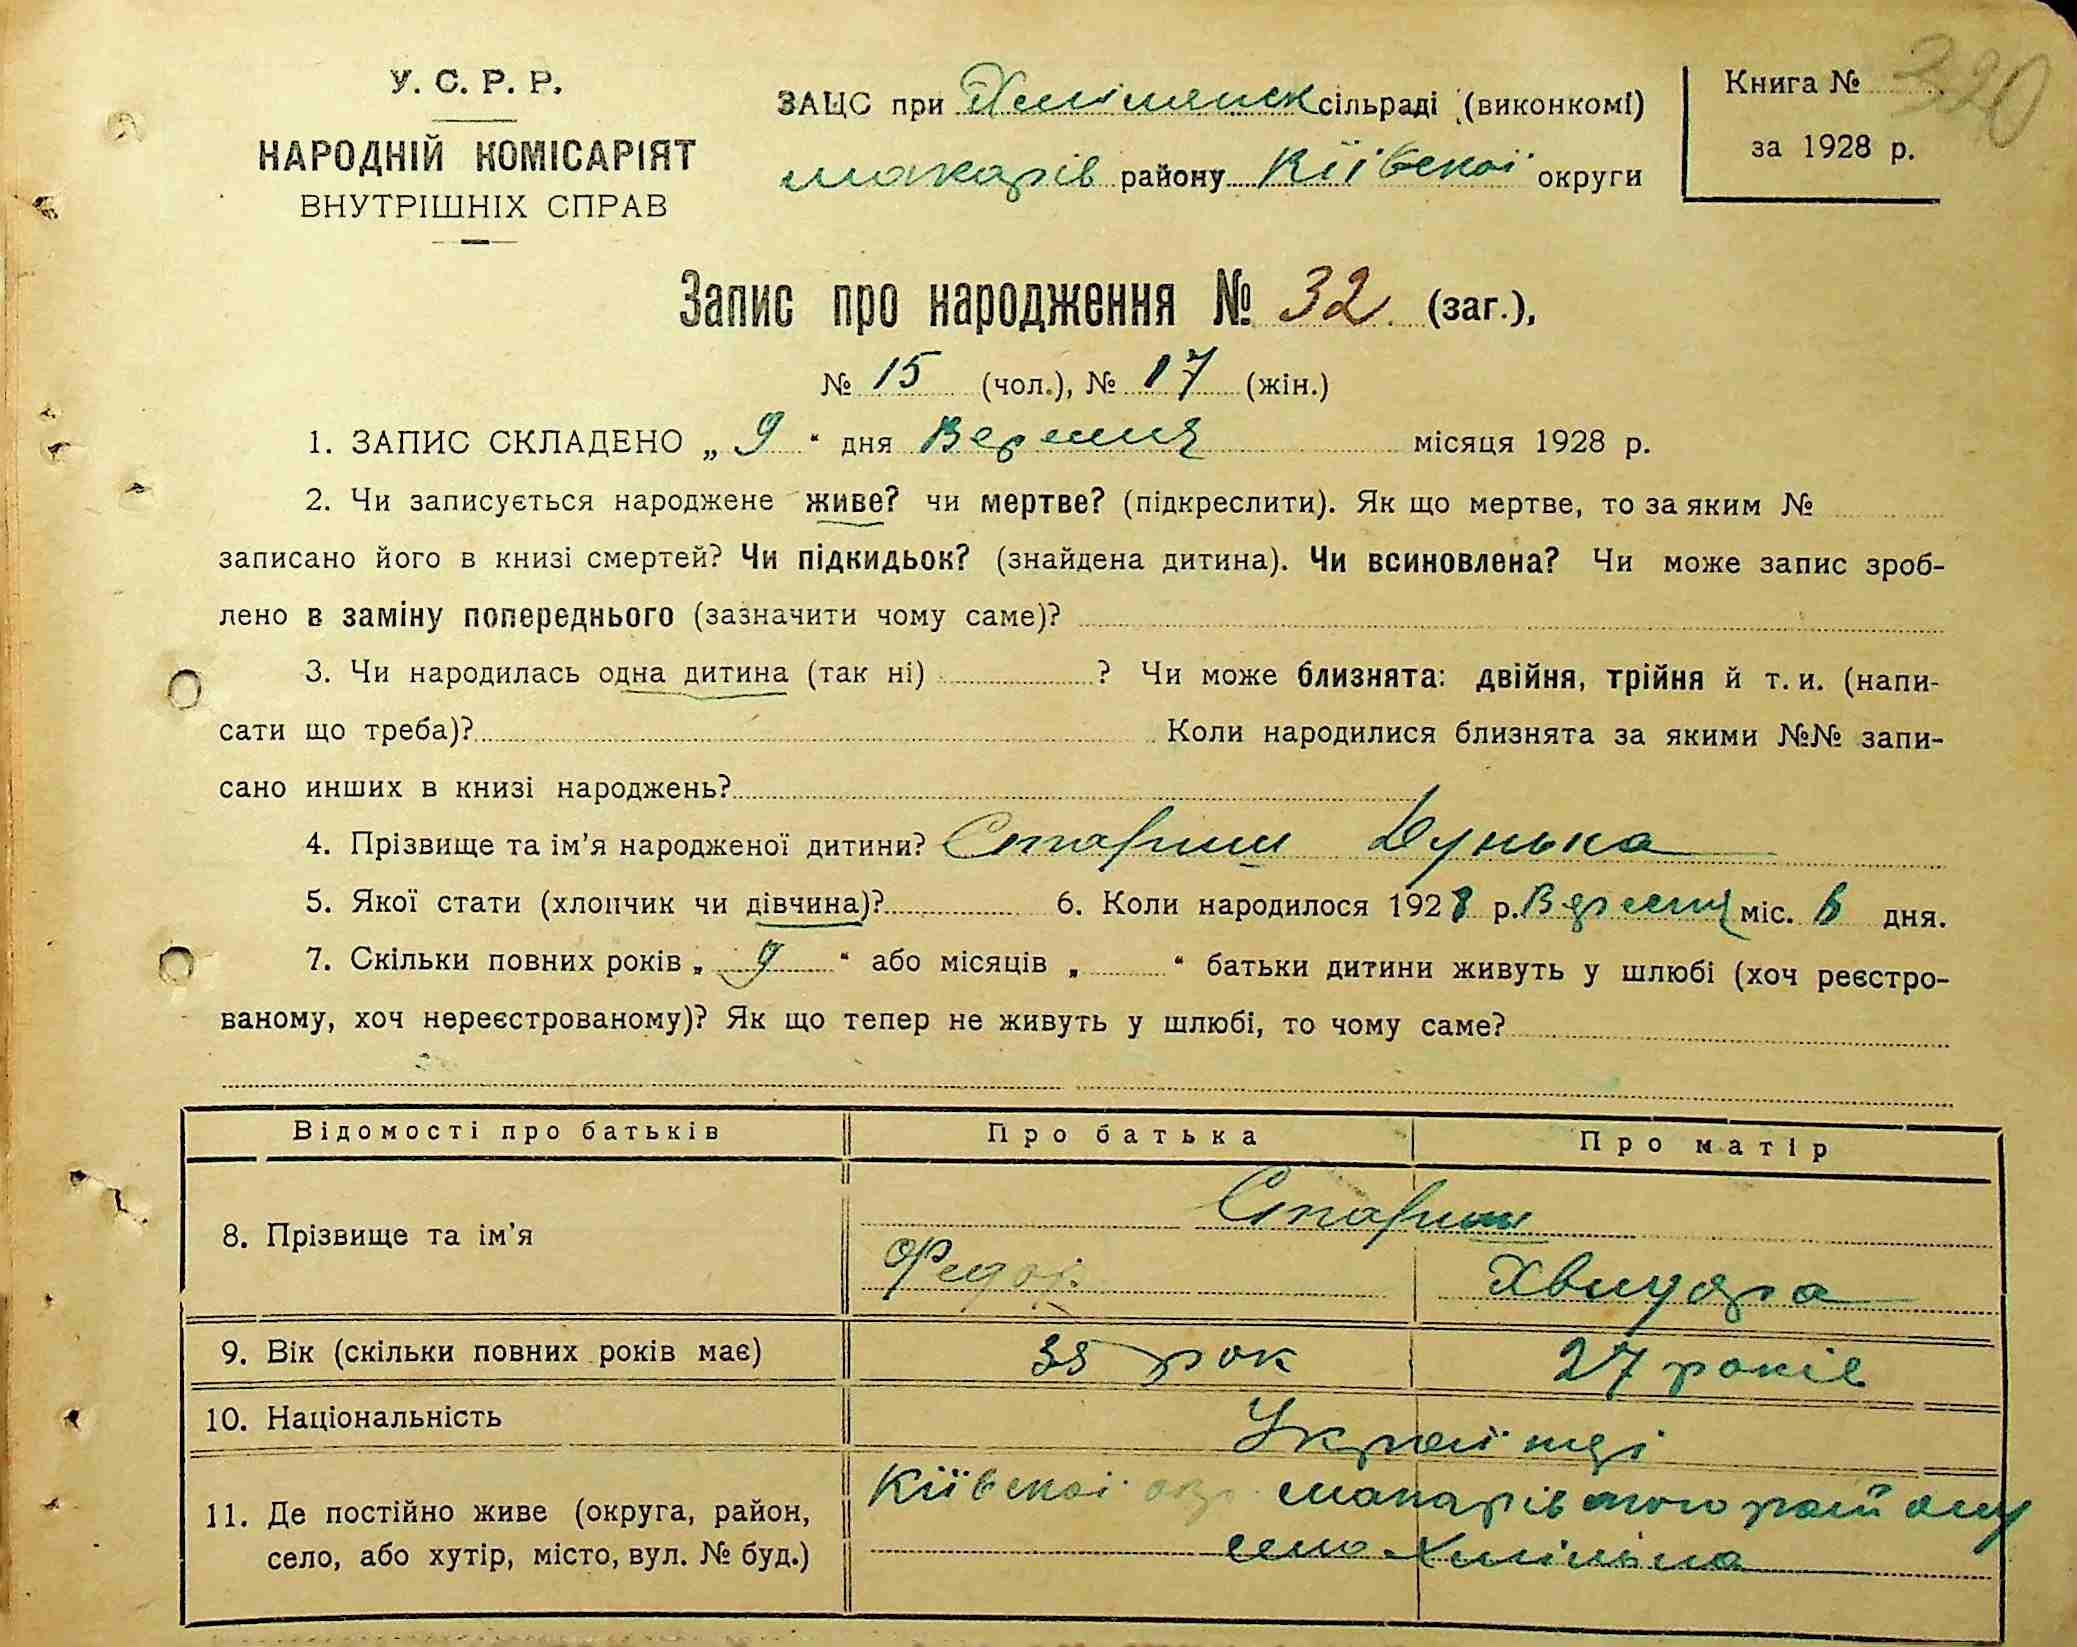 У. С. Р. Р.
НАРОДНІЙ КОМІСАРІЯТ
ВНУТРІШНІХ СПРАВ
ЗАЦС при сільраді (виконкомі)
макарів району Київскоі округи
Книга № 320
за 1928 р.
Запис про народження № 32 (заг.),
№ 15 (чол.), № 17 (жін.)
1. ЗАПИС СКЛАДЕНО „ 9 “ дня Вересня місяця 1928 р.
2. Чи записується народжене живе? чи мертве? (підкреслити). Як що мертве, то за яким №
записано його в книзі смертей? Чи підкидьок? (знайдена дитина). Чи всиновлена? Чи може запис зроб-
лено в заміну попереднього (зазначити чому саме)?
3. Чи народилась одна дитина (так ні) ? Чи може близнята: двійня, трійня й т. и. (напи-
сати що треба)? Коли народилися близнята за якими №№ запи-
сано инших в книзі народжень?
4. Прізвище та ім’я народженої дитини? Стариш Дунька
5. Якої стати (хлопчик чи дівчина)? 6. Коли народилося 1928 р. Вересня міс. 6 дня.
7. Скільки повних років „ 9 “ або місяців „ “ батьки дитини живуть у шлюбі (хоч реєстро-
ваному, хоч нереєстрованому)? Як що тепер не живуть у шлюбі, то чому саме?
Відомості про батьків Про батька Про матір
8. Прізвище та ім’я Стариш
Федор Хвидора
9. Вік (скільки повних років має) 35 рок 27 років
10. Національність Українці
11. Де постійно живе (округа, район, Київскоі окр. макарівского району
село, або хутір, місто, вул. № буд.) село